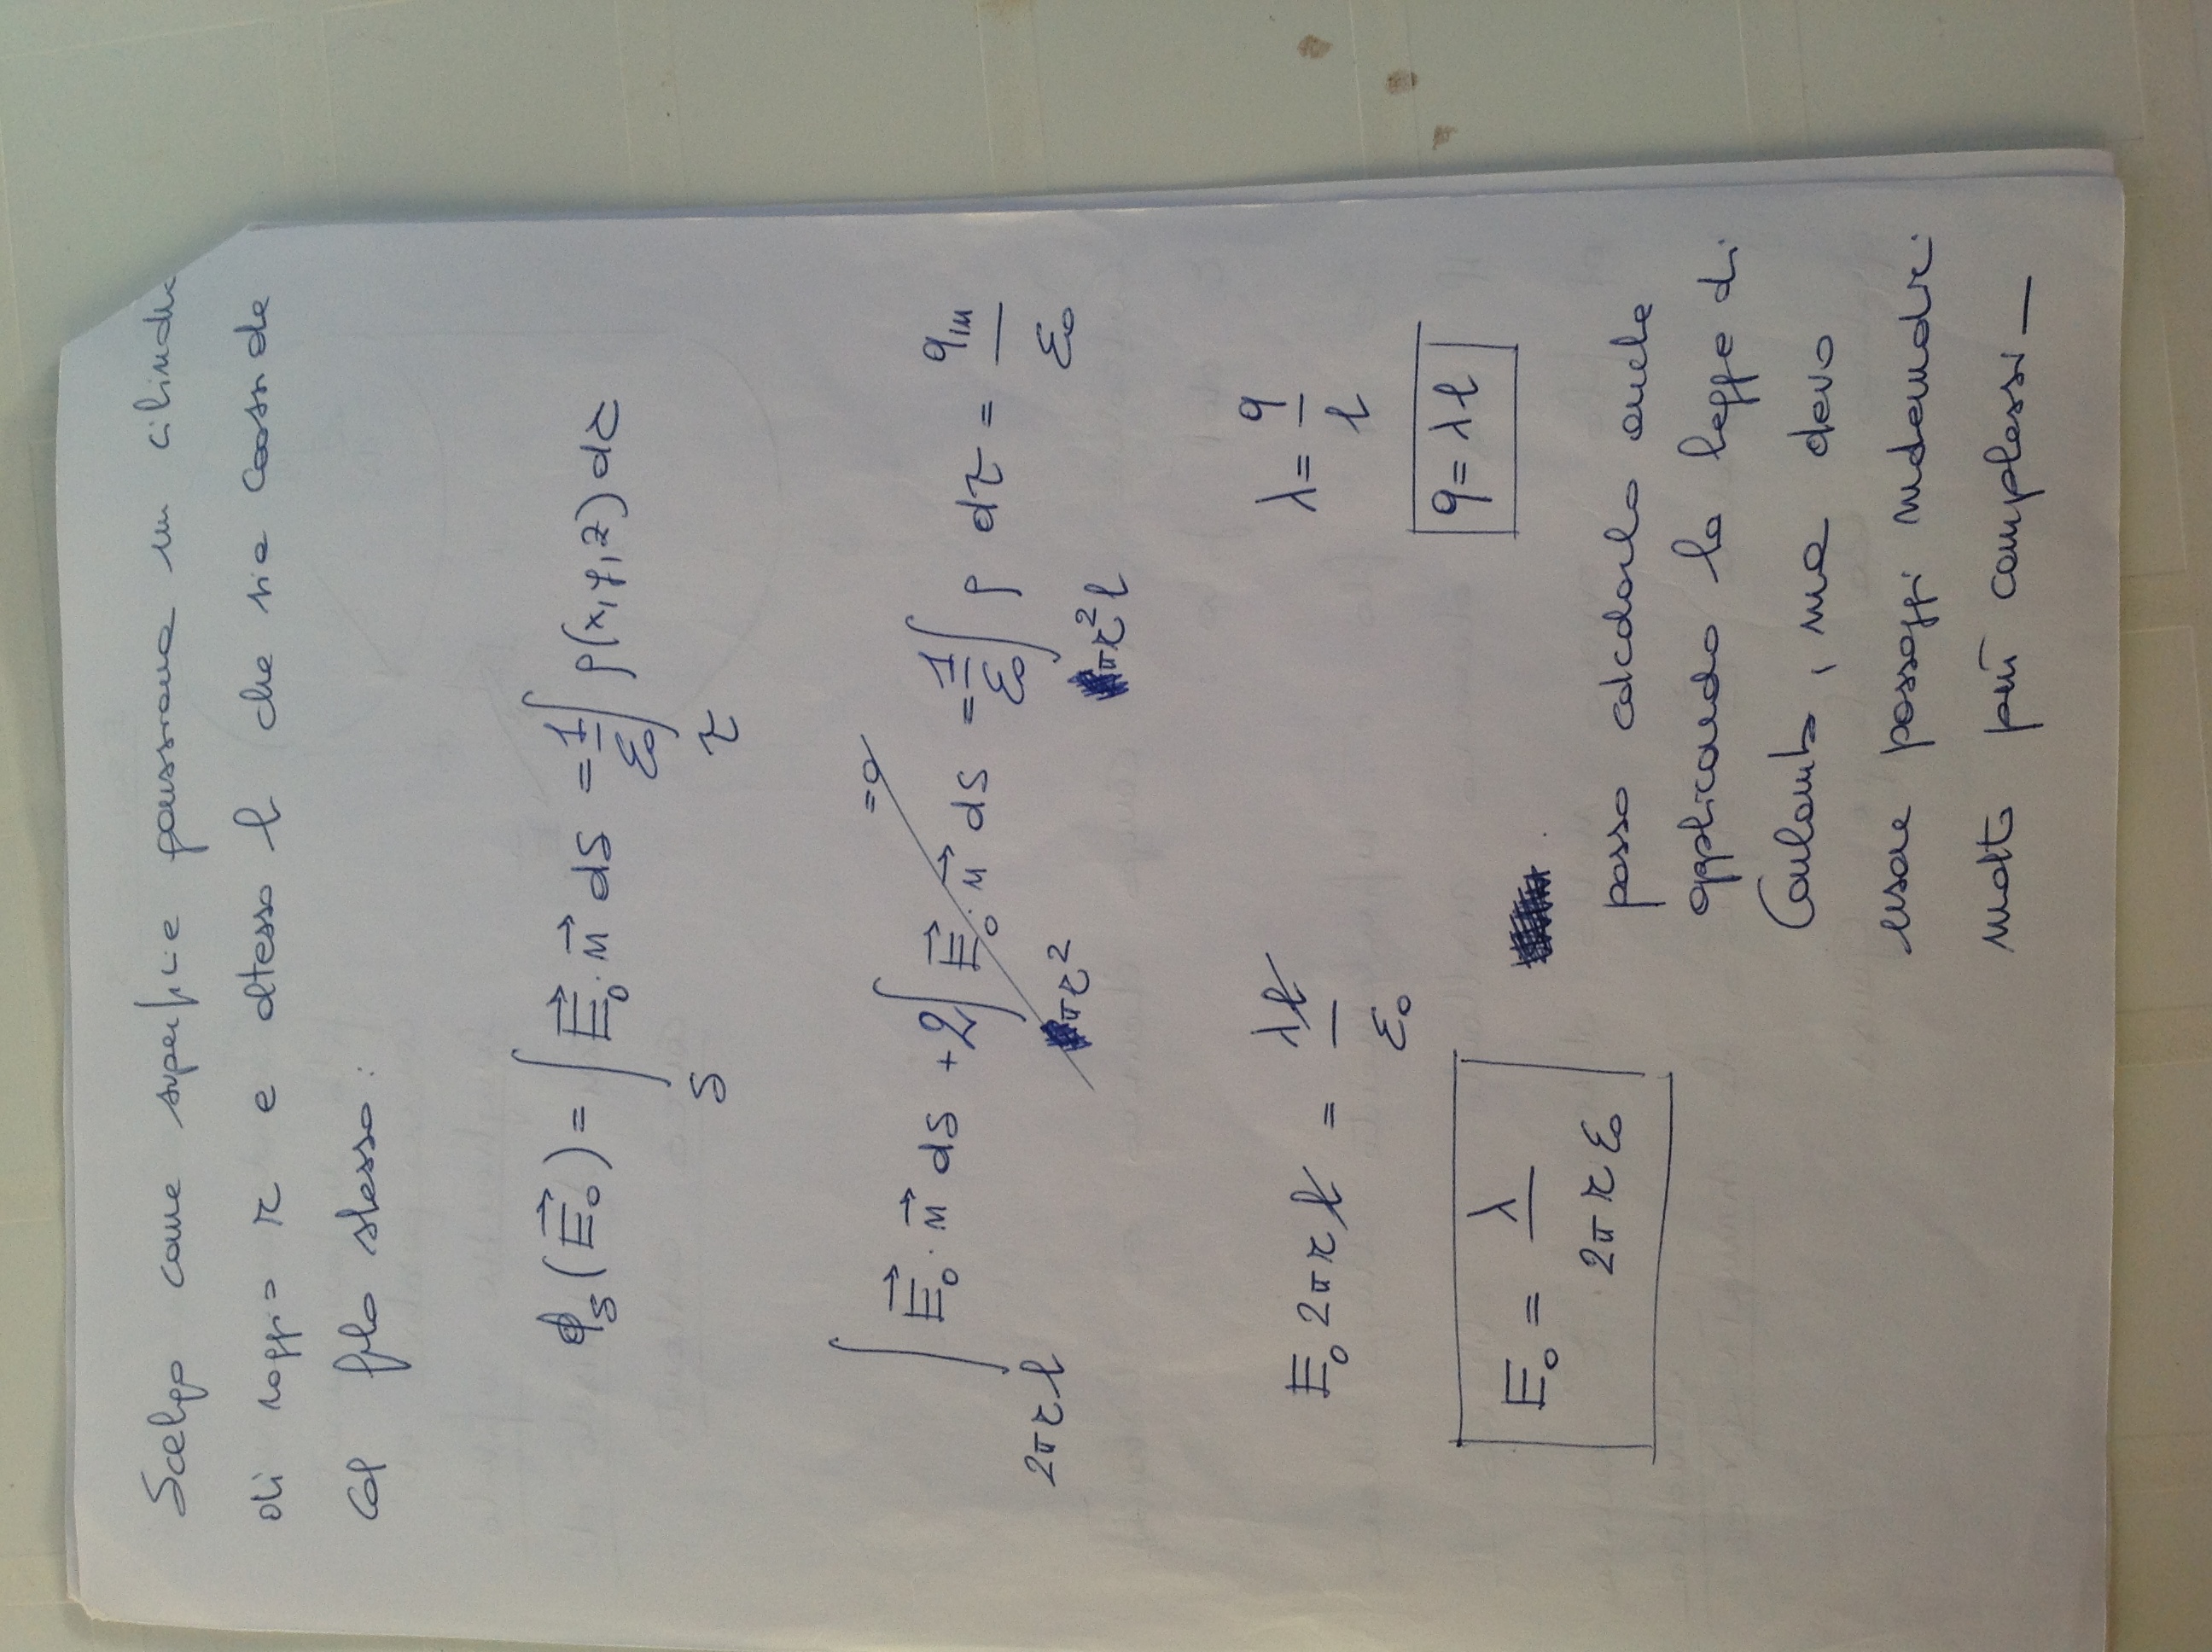 Scelgo come superficie gaussiana un cilindro
di raggio r e altezza l che sia coassiale
col filo stesso:
ϕ_S(E⃗₀) = ∫_S E⃗₀ · n⃗ dS = 1/ε₀ ∫_τ ρ(x,y,z) dτ
∫_{2πrl} E⃗₀ · n⃗ dS + 2∫_{πr²} E⃗₀ · n⃗ dS = 1/ε₀ ∫_{πr²l} ρ dτ = q_in/ε₀
=0
E₀ 2πrl = λl/ε₀
λ = q/l
q = λl
E₀ = λ/2πrε₀
posso calcolarlo anche
applicando la legge di
Coulomb, ma devo
usare passaggi matematici
molto più complessi _